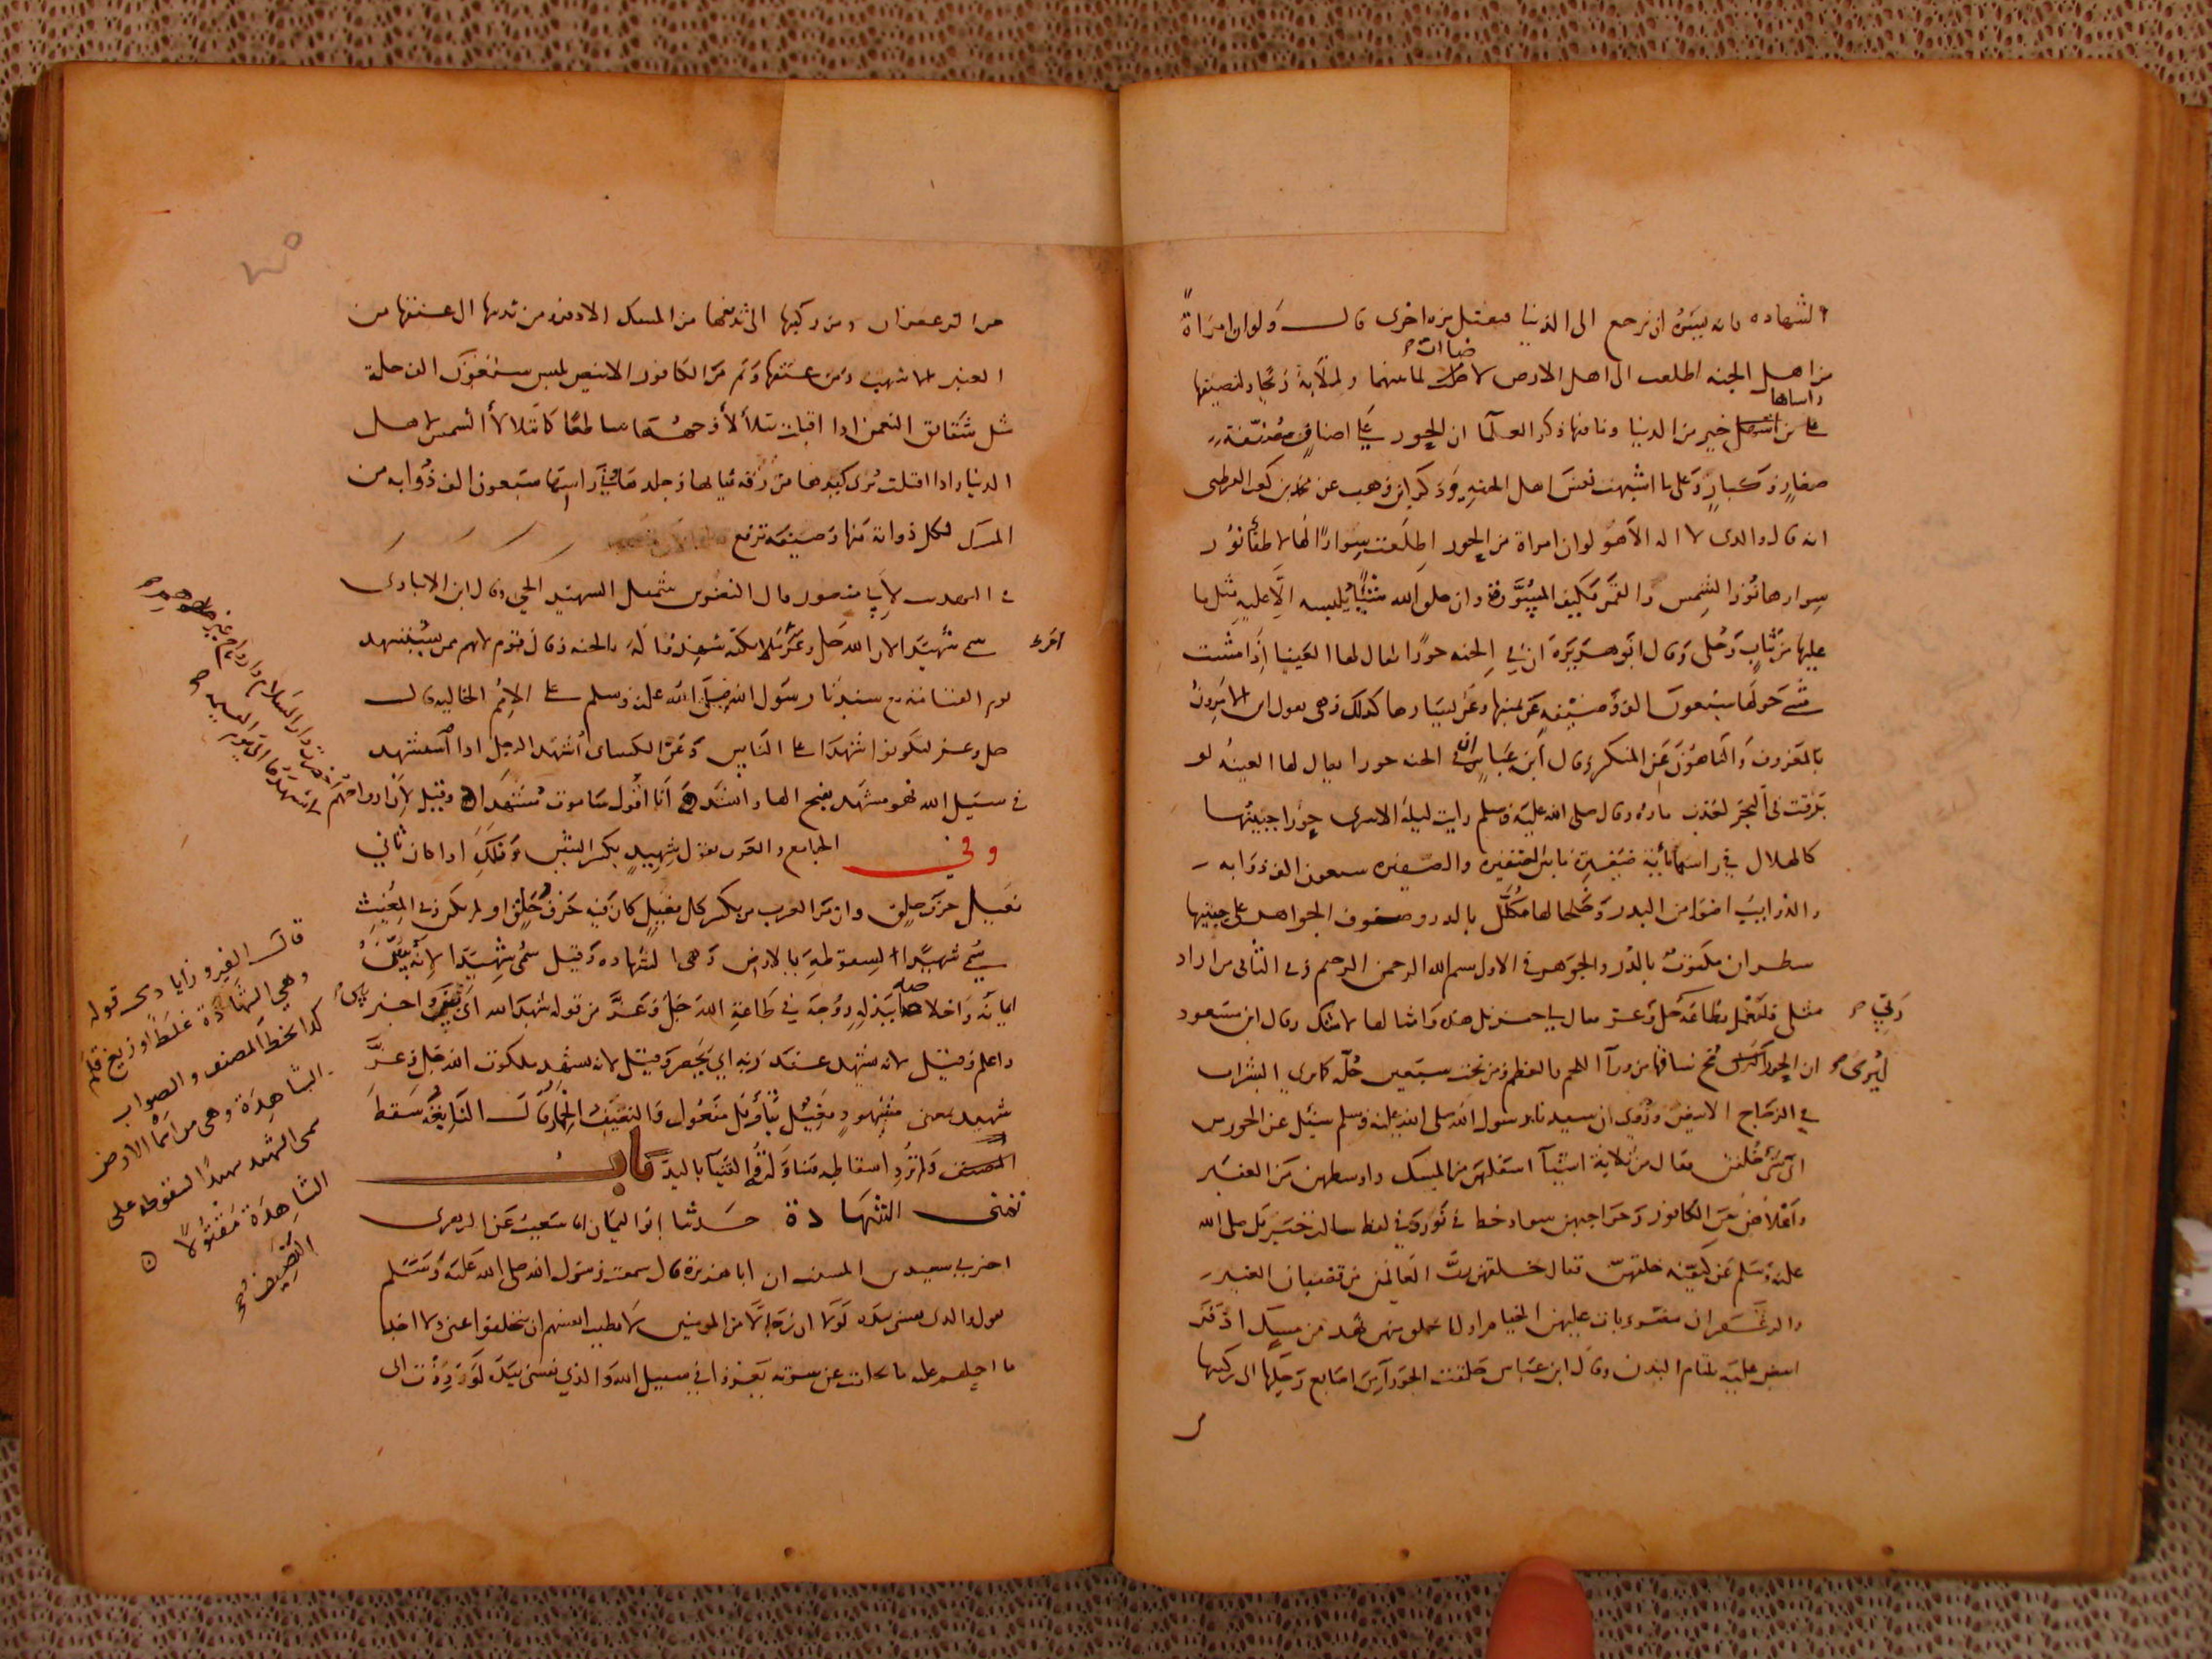 الشهاده فانه يسره ان يرجع الى الدنيا فيقتل مره اخرى قال ولو ان امراة
من اهل الجنه اطلعت الى اهل الارض لاضات ما بينهما ولملأته ريحا ولنصيفها
على راسها خير من الدنيا وما فيها ذكر العلما ان الحور على اصناف مصنفة
صغار وكبار وعلى ما اشتهت نفس اهل الجنه وذكر ابن وهب عن محمد بن كعب القرظى
انه قال والدى لا اله الا هو لو ان امراة من الحور اطلعت سوارا لها لاطفأ نور
سوارها نور الشمس والقمر فكيف المسورة وان خلق الله شيئا يلبسه الا عليه مثل ما
عليها من ثياب وحلى وقال ابو هريرة ان في الجنه حورا يقال لها العينا اذا مشت
مشى حولها سبعون الف وصيفه عن يمينها وعن يسارها كذلك وهى تقول اين الامرون
بالمعروف والناهون عن المنكر وقال ابن عباس ان في الجنه حورا يقال لها العينه لو
بزقت فى البحر لعذب ماؤه وقال صلى الله عليه وسلم رايت ليلة الاسرى حورا جبينها
كالهلال في راسها مائة ضفيرة ما بين الضفيره والضفيره سبعون الف ذوابه
والذوايب اضوا من البدر وخلخالها مكلل بالدر وصنوف الجواهر على جبينها
سطران مكتوب بالدر والجوهر في الاول بسم الله الرحمن الرحيم وفى الثانى من اراد
مثلى فليعمل بطاعة ربى جل وعز فقال لي جبريل هذه وامثالها لامتك وقال ابن مسعود
ان الحوراء ليرى مخ ساقها من ورآ اللحم والعظم ومن تحت سبعين حلة كما يرى الشراب
في الزجاج الابيض وروى ان سيدنا رسول الله صلى الله عليه وسلم سئل عن الحور من
اى شى خلقن فقال من ثلاثة اشيآ اسفلهن من المسك واوسطهن من العنبر
واعلاهن من الكافور وحواجبهن سواد خط في نور وفي لفظ سالت جبريل صلى الله
عليه وسلم عن كيفية خلقهن فقال خلقهن رب العالمين من قضبان العنبر
والزعفران مضروبات عليهن الخيام اول ما يخلق منهن نهد من مسك اذفر
ابيض عليه يلتام البدن وقال ابن عباس خلقت الحورآ من اصابع رجليها الى ركبتها
من الزعفران ومن ركبتها الى ثدييها من المسك الاذفر ومن ثدييها الى عنقها من
العنبر الاشهب ومن عنقها وثم من الكافور الابيض تلبس سبعون الف حلة
مثل شقائق النعمن اذا اقبلت يتلألأ وجهها ساطعا كما تتلالأ الشمس لاهل
الدنيا واذا اقبلت ترى كبدها من رقة ثيابها وجلدها في راسها سبعون الف ذوابه من
المسك لكل ذوابة منها وصيفة ترفع
في التهذيب لابي منصور قال النضر بن شميل الشهيد الحي وقال ابن الانبارى
سمى شهيدا لان الله جل وعز وملائكته شهود له بالجنه وقال قوم لانهم ممن يستشهد
يوم القيامه مع سيدنا رسول الله صلى الله عليه وسلم على الامم الخالية قال
جل وعز لتكونوا شهدا على الناس وعن الكساى اُشهد الرجل اذا استشهد
في سبيل الله فهو مشهد بفتح الها وانشد انا اقول ساموت مشهدا وقيل لان ارواحهم
وفى الجامع والعرب تقول شهيد بكسر الشين وكذلك اذا كان ثاني
فعيل حرف حلق وان من العرب من يكسر كل فعيل كان فيه حرف حلق او لم يكن وفى المغيث
سمى شهيدا لسقوطه بالارض وهى الشهاده وقيل سمى شهيدا لانه يبين
ايمانه واخلاصه ببذله روحه في طاعة الله جل وعز من قوله شهد الله اى بين واخبر
واعلم وقيل لانه شهد عند ربه اي حضر وقيل لانه شهد ملكوت الله جل وعز
شهيد بمعنى مشهود
باب
تمنى الشهادة حدثنا ابو اليمان انا شعيب عن الزهرى
اخبرني سعيد بن المسيب ان ابا هريرة قال سمعت رسول الله صلى الله عليه وسلم
يقول والذى نفسى بيده لولا ان رجالا من المومنين لا تطيب انفسهم ان يتخلفوا عنى ولا اجد
ما احملهم عليه ما تخلفت عن سريه تغزوا في سبيل الله والذي نفسى بيده لوددت انى
احضرت دار السلام وارواح غيرهم
لا تشهدها الى يوم القيمه
قال الفيروزابادى قوله
وهي الشهادة غلط او زيغ قلم
كذا بخط المصنف والصواب
الشاهدة وهى من اسما الارض
سمى الشهيد شهيدا لسقوطه على
الشاهدة مقتولا